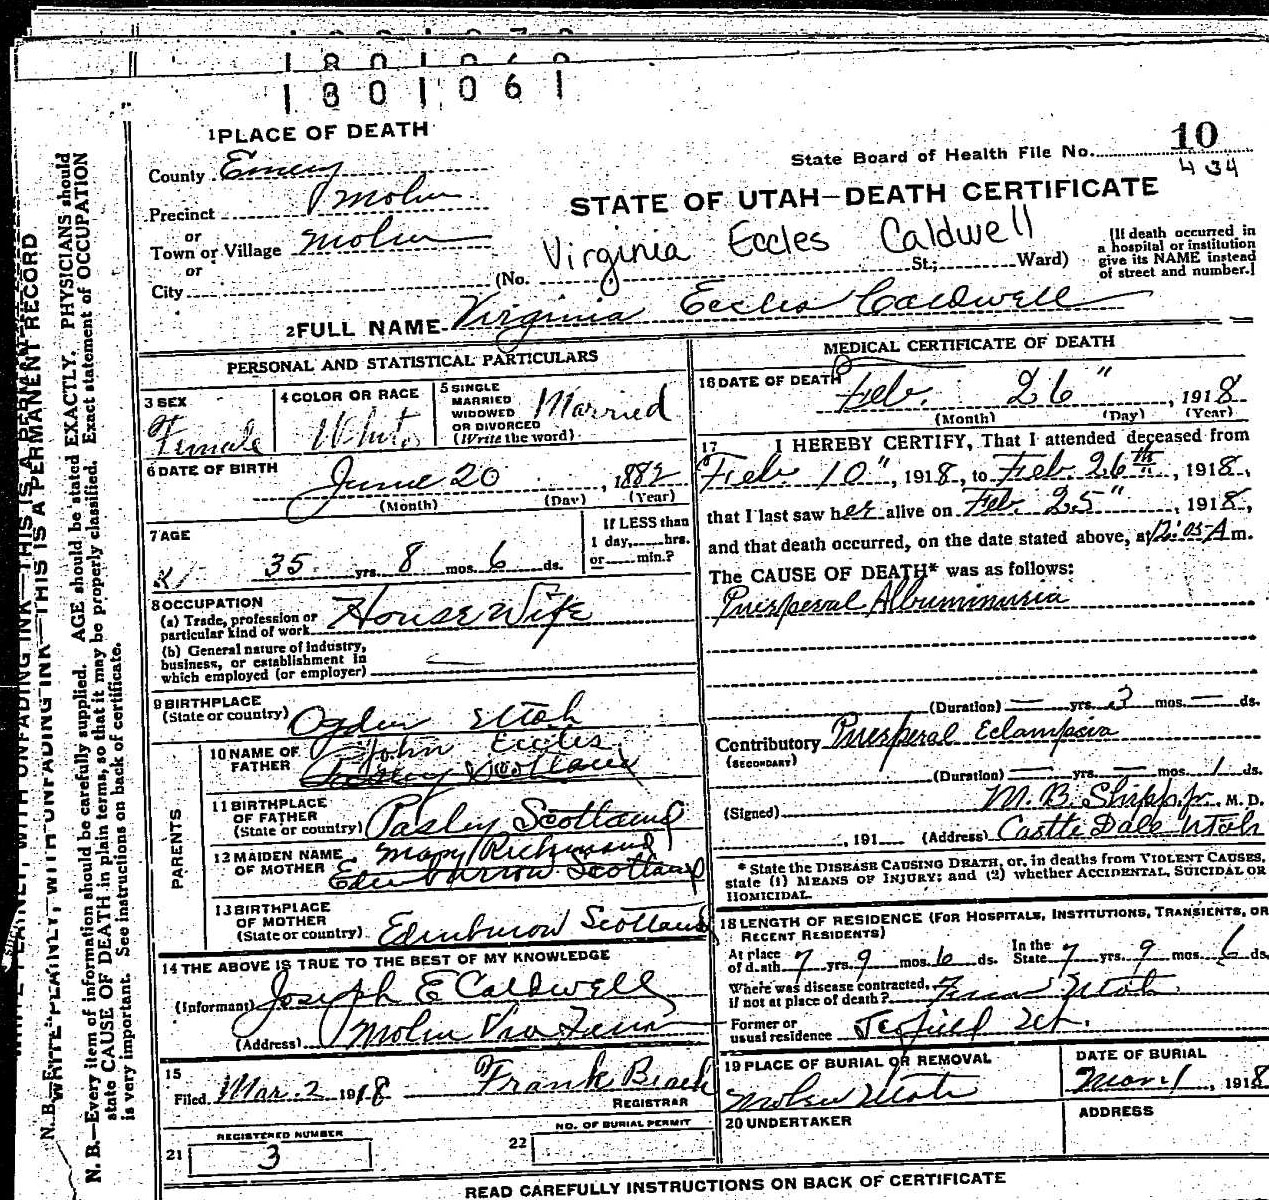 1801061
1 PLACE OF DEATH
State Board of Health File No. 10
434
County Emery
STATE OF UTAH—DEATH CERTIFICATE
Precinct Molen
or
Town or Village Molen
Virginia Eccles Caldwell
or
City
(No. St.; Ward)
[If death occurred in
a hospital or institution
give its NAME instead
of street and number.]
2 FULL NAME Virginia Eccles Caldwell
PERSONAL AND STATISTICAL PARTICULARS
3 SEX
Female
4 COLOR OR RACE
White
5 SINGLE
MARRIED
WIDOWED
OR DIVORCED
(Write the word)
Married
6 DATE OF BIRTH
June 20, 1882
(Month) (Day) (Year)
7 AGE
35 yrs. 8 mos. 6 ds.
If LESS than
1 day, hrs.
or min.?
8 OCCUPATION
(a) Trade, profession or
particular kind of work House Wife
(b) General nature of industry,
business, or establishment in
which employed (or employer)
9 BIRTHPLACE
(State or country) Ogden Utah
PARENTS
10 NAME OF
FATHER
John Eccles
11 BIRTHPLACE
OF FATHER
(State or country) Pasley Scotland
12 MAIDEN NAME
OF MOTHER
Mary
13 BIRTHPLACE
OF MOTHER
(State or country) Edinburow Scotland
14 THE ABOVE IS TRUE TO THE BEST OF MY KNOWLEDGE
(Informant) Joseph E Caldwell
(Address) Molen Via Ferron
15
Filed Mar. 2 1918 Frank Beach
REGISTRAR
21 REGISTERED NUMBER
3
22 NO. OF BURIAL PERMIT
MEDICAL CERTIFICATE OF DEATH
16 DATE OF DEATH
Feb. 26", 1918
(Month) (Day) (Year)
17 I HEREBY CERTIFY, That I attended deceased from
Feb. 10", 1918, to Feb. 26th, 1918,
that I last saw her alive on Feb. 25", 1918,
and that death occurred, on the date stated above, at 12:05 A m.
The CAUSE OF DEATH* was as follows:
Puerperal Albuminuria
(Duration) — yrs. 3 mos. — ds.
Contributory Puerperal Eclampsia
(SECONDARY)
(Duration) — yrs. — mos. 1 ds.
(Signed) M. B. Shipp, jr., M. D.
, 191 (Address) Castle Dale Utah
* State the DISEASE CAUSING DEATH, or, in deaths from VIOLENT CAUSES,
state (1) MEANS OF INJURY; and (2) whether ACCIDENTAL, SUICIDAL OR
HOMICIDAL.
18 LENGTH OF RESIDENCE (FOR HOSPITALS, INSTITUTIONS, TRANSIENTS, OR
RECENT RESIDENTS)
At place
of death 7 yrs. 9 mos. 6 ds.
In the
State 7 yrs. 9 mos. 6 ds.
Where was disease contracted,
if not at place of death? Ferron Utah
Former or
usual residence Scofield Ut.
19 PLACE OF BURIAL OR REMOVAL
Molen Utah
DATE OF BURIAL
Mar. 1, 1918
20 UNDERTAKER
ADDRESS
READ CAREFULLY INSTRUCTIONS ON BACK OF CERTIFICATE
WRITE PLAINLY, WITH UNFADING INK—THIS IS A PERMANENT RECORD
N. B.—Every item of information should be carefully supplied. AGE should be stated EXACTLY. PHYSICIANS should
state CAUSE OF DEATH in plain terms, so that it may be properly classified. Exact statement of OCCUPATION
is very important. See instructions on back of certificate.